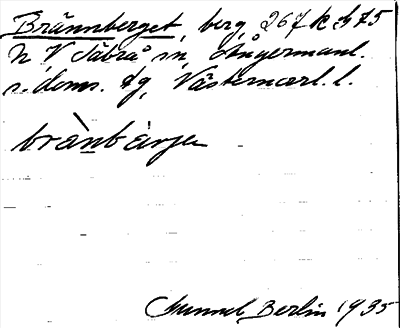 Brännberget, berg, 267 k b 75
N. V Säbrå sn, Ångermanl.
s. doms. dg, Västernorrl. l.
brànbärjə
Gunnel Berlin 1935